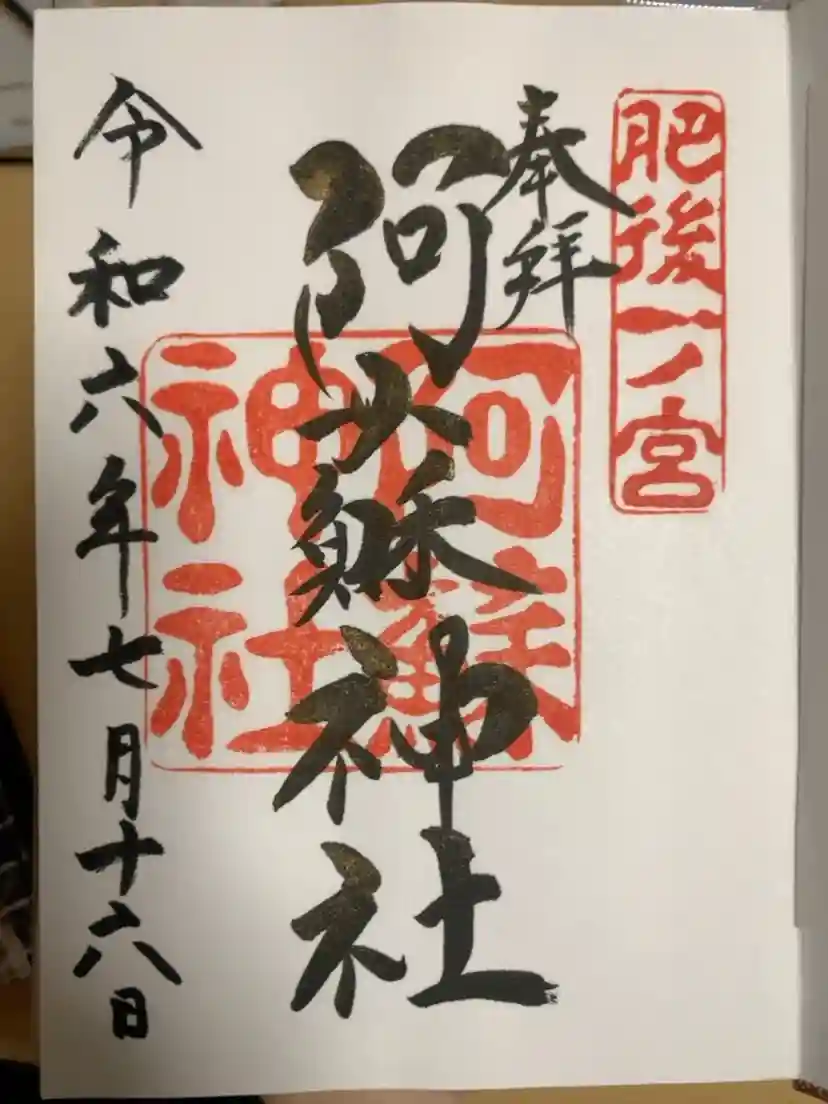 肥後一ノ宮
奉拝
阿蘇神社
阿蘇
神社
令和六年七月十六日